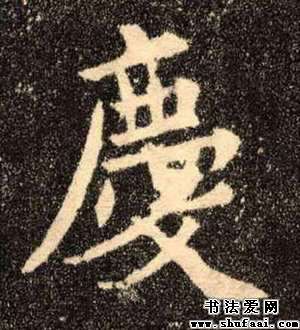 慶
书法爱网
www.shufaai.com